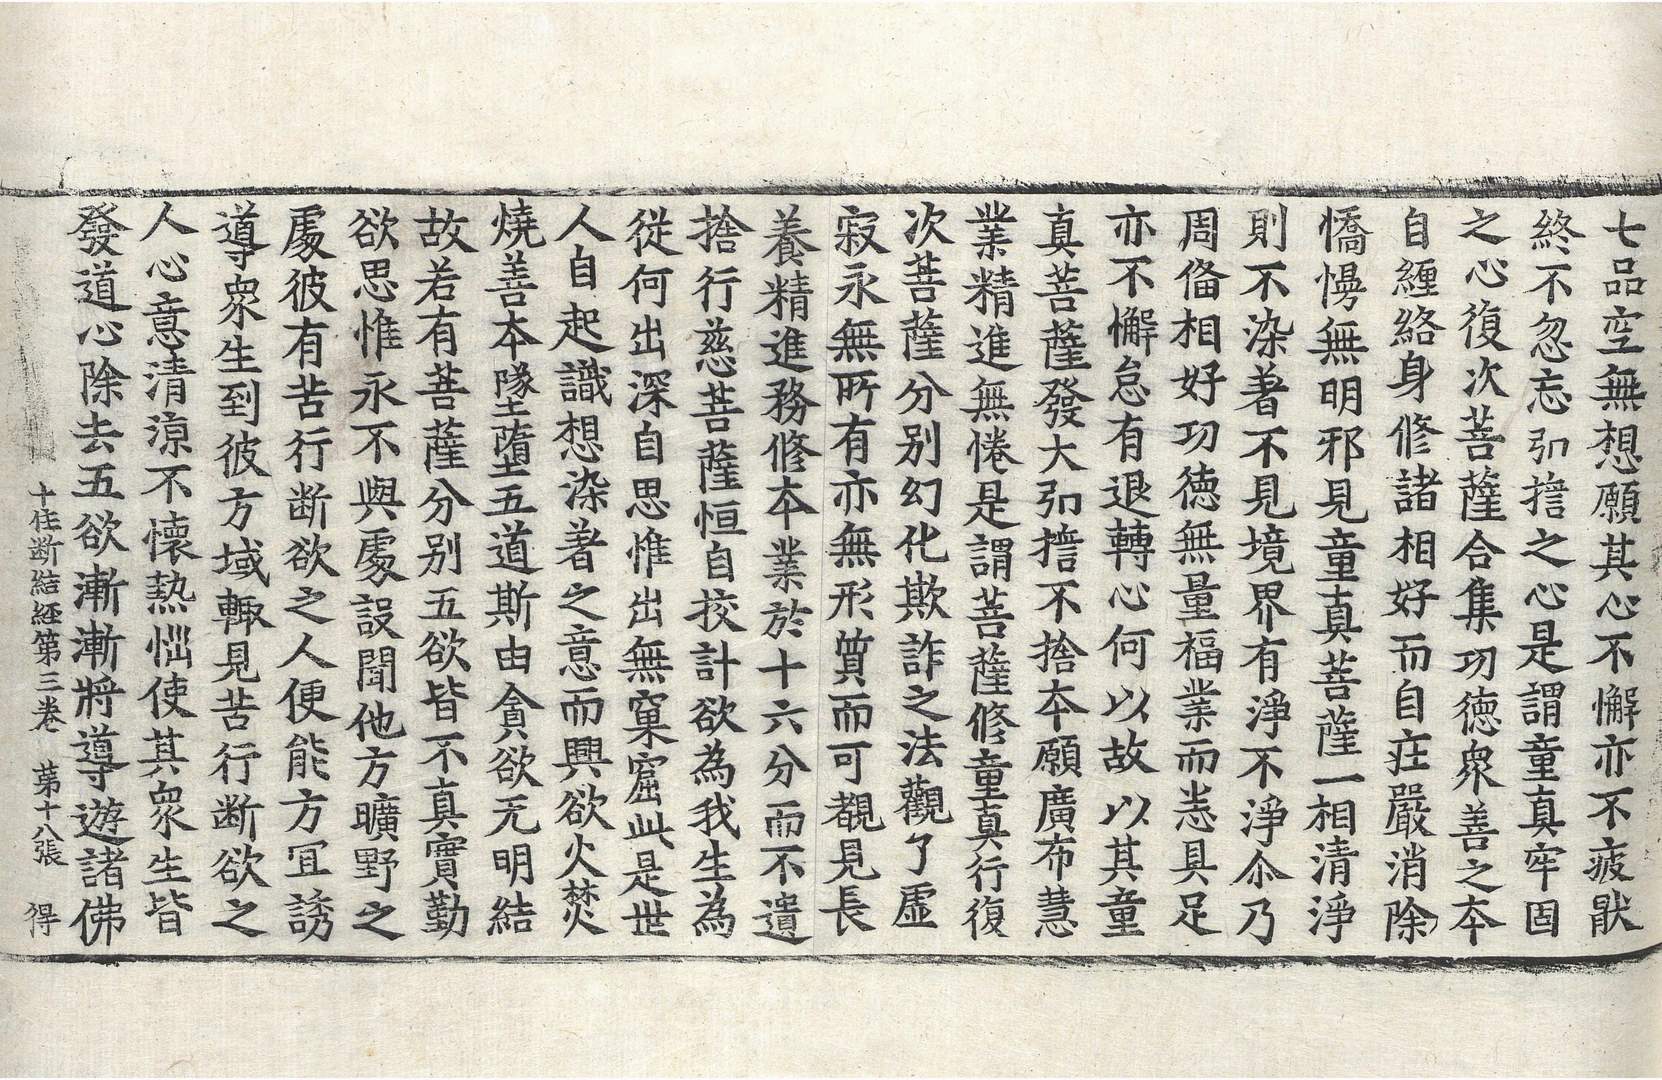 七品空無想願其心不懈亦不疲猒
終不忽忘弘誓之心是謂童真牢固
之心復次菩薩合集功德衆善之本
自纏絡身修諸相好而自莊嚴消除
憍慢無明邪見童真菩薩一相清淨
則不染著不見境界有淨不淨尒乃
周俻相好功德無量福業而悉具足
亦不懈怠有退轉心何以故以其童
真菩薩發大弘誓不捨本願廣布慧
業精進無惓是謂菩薩修童真行復
次菩薩分別幻化欺詐之法觀了虛
寂永無所有亦無形質而可覩見長
養精進務修本業於十六分而不遺
捨行慈菩薩恒自挍計欲為我生為
從何出深自思惟出無窠窟此是世
人自起識想染著之意而興欲火焚
燒善本墜墮五道斯由貪欲无明結
故若有菩薩分別五欲皆不真實勤
欲思惟永不與處設聞他方曠野之
處彼有苦行断欲之人便能方冝誘
導衆生到彼方域輙見苦行断欲之
人心意清涼不懷熱惱使其衆生皆
發道心除去五欲漸漸將導遊諸佛
十住断結經第三卷 第十八張 得